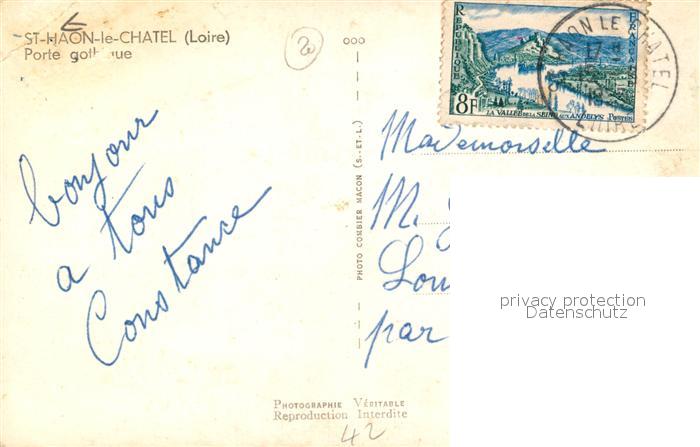 ST-HAON-le-CHATEL (Loire)
Porte gothique
2
bonjour
a tous
Constance
PHOTO COMBIER MACON (S.-ET-L.)
PHOTOGRAPHIE VÉRITABLE
Reproduction Interdite
42
REPUBLIQUE
FRANÇAISE
8F
LA VALLÉE DE LA SEINE AUX ANDELYS POSTES
HAON LE CHATEL
17 H
LOIRE
Mademoiselle
M.
Lou
par
privacy protection
Datenschutz